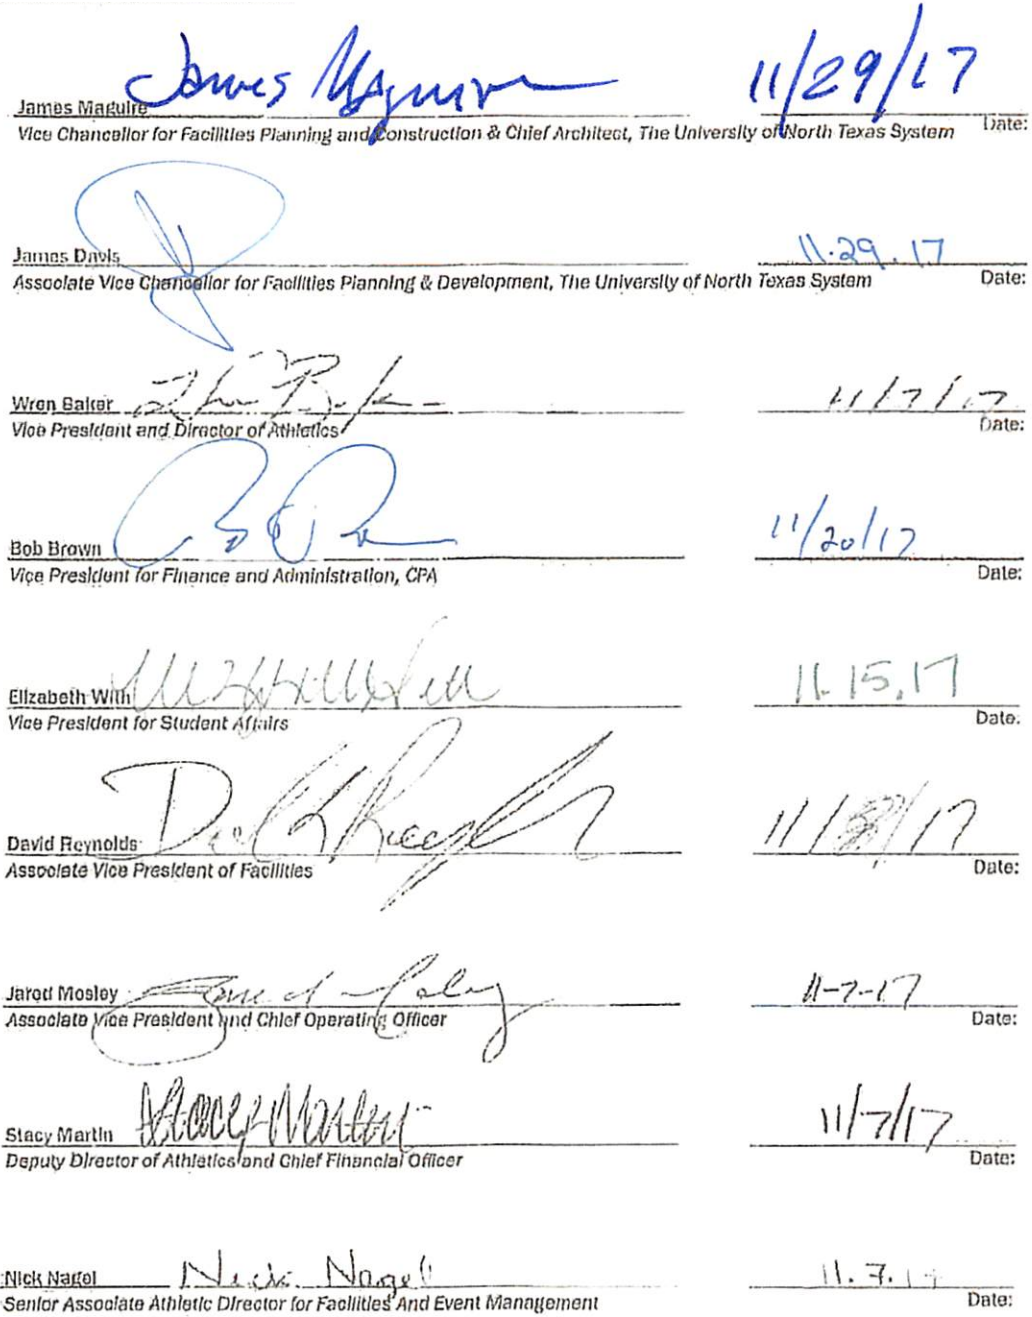 James Maguire James Maguire 11/29/17
Vice Chancellor for Facilities Planning and Construction & Chief Architect, The University of North Texas System Date:
James Davis 11.29.17
Associate Vice Chancellor for Facilities Planning & Development, The University of North Texas System Date:
Wren Baker 11/7/17
Vice President and Director of Athletics Date:
Bob Brown 11/20/17
Vice President for Finance and Administration, CPA Date:
Elizabeth With 11.15.17
Vice President for Student Affairs Date:
David Reynolds 11/ /17
Associate Vice President of Facilities Date:
Jared Mosley Jared Mosley 11-7-17
Associate Vice President and Chief Operating Officer Date:
Stacy Martin Stacy Martin 11/7/17
Deputy Director of Athletics and Chief Financial Officer Date:
Nick Nagel Nick Nagel 11.7.17
Senior Associate Athletic Director for Facilities And Event Management Date: